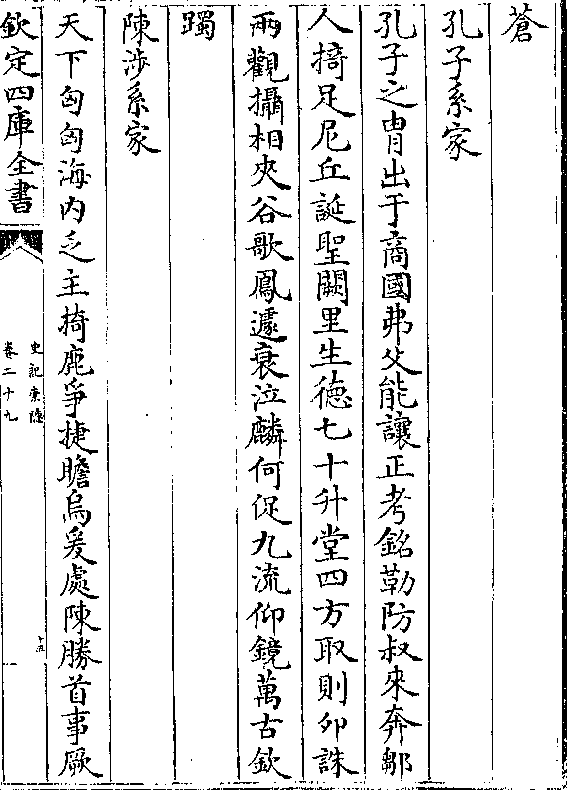 蒼
孔子系家
孔子之胄出于商國弗父能讓正考銘勒防叔來奔鄒
人掎足尼丘誕聖闕里生德七十升堂四方取則卯誅
兩觀攝相夾谷歌鳳遽衰泣麟何促九流仰鏡萬古欽
躅
陳涉系家
天下匈匈海内乏主掎鹿爭捷瞻烏爰處陳勝首事厥
欽定四庫全書
史記索隱
卷二十九
十五